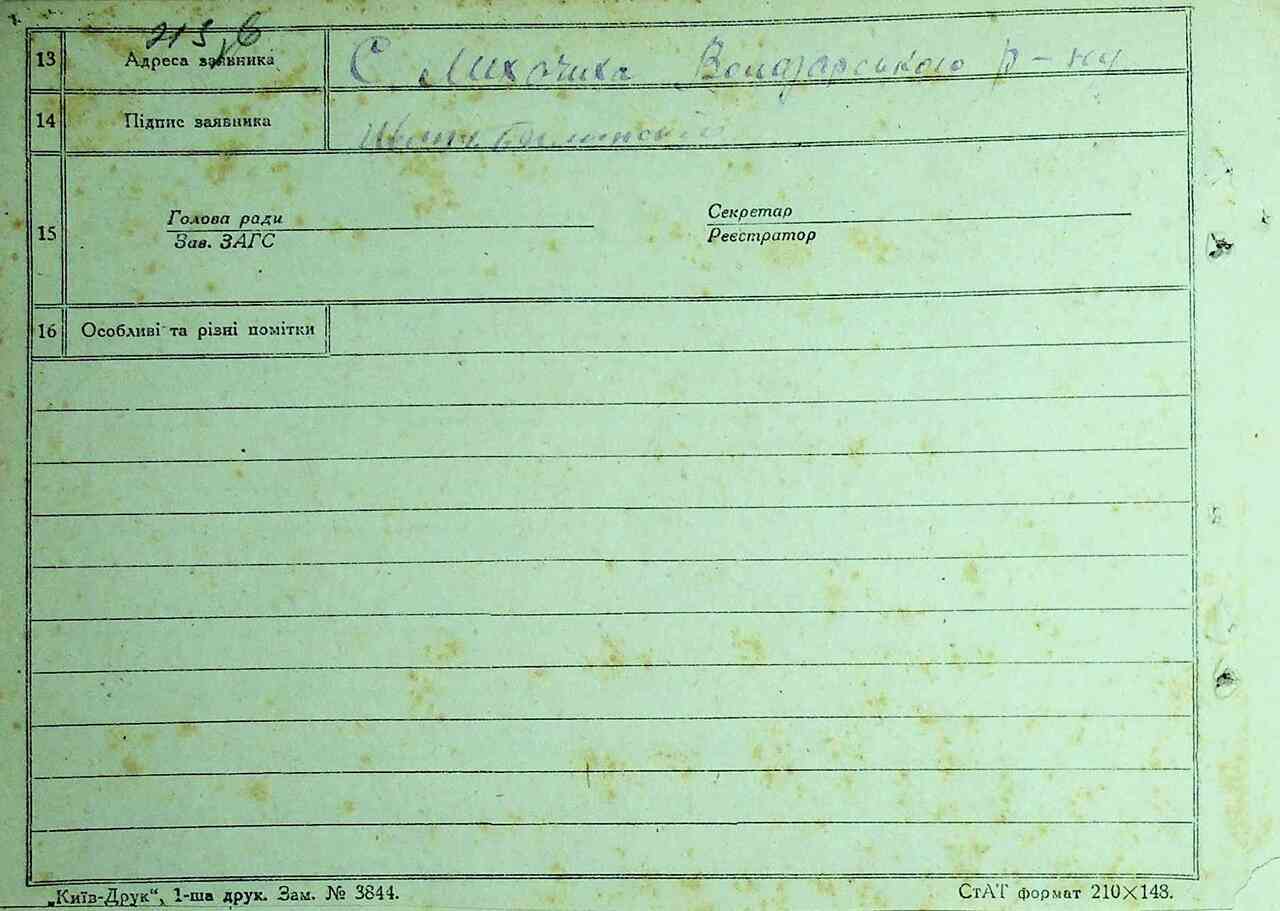 13 Адреса заявника С. Михочиха р-ну
14 Підпис заявника
15
Голова ради Секретар
Зав. ЗАГС Реєстратор
16 Особливі та різні помітки
„Київ-Друк“, 1-ша друк. Зам. № 3844. СтАТ формат 210×148.